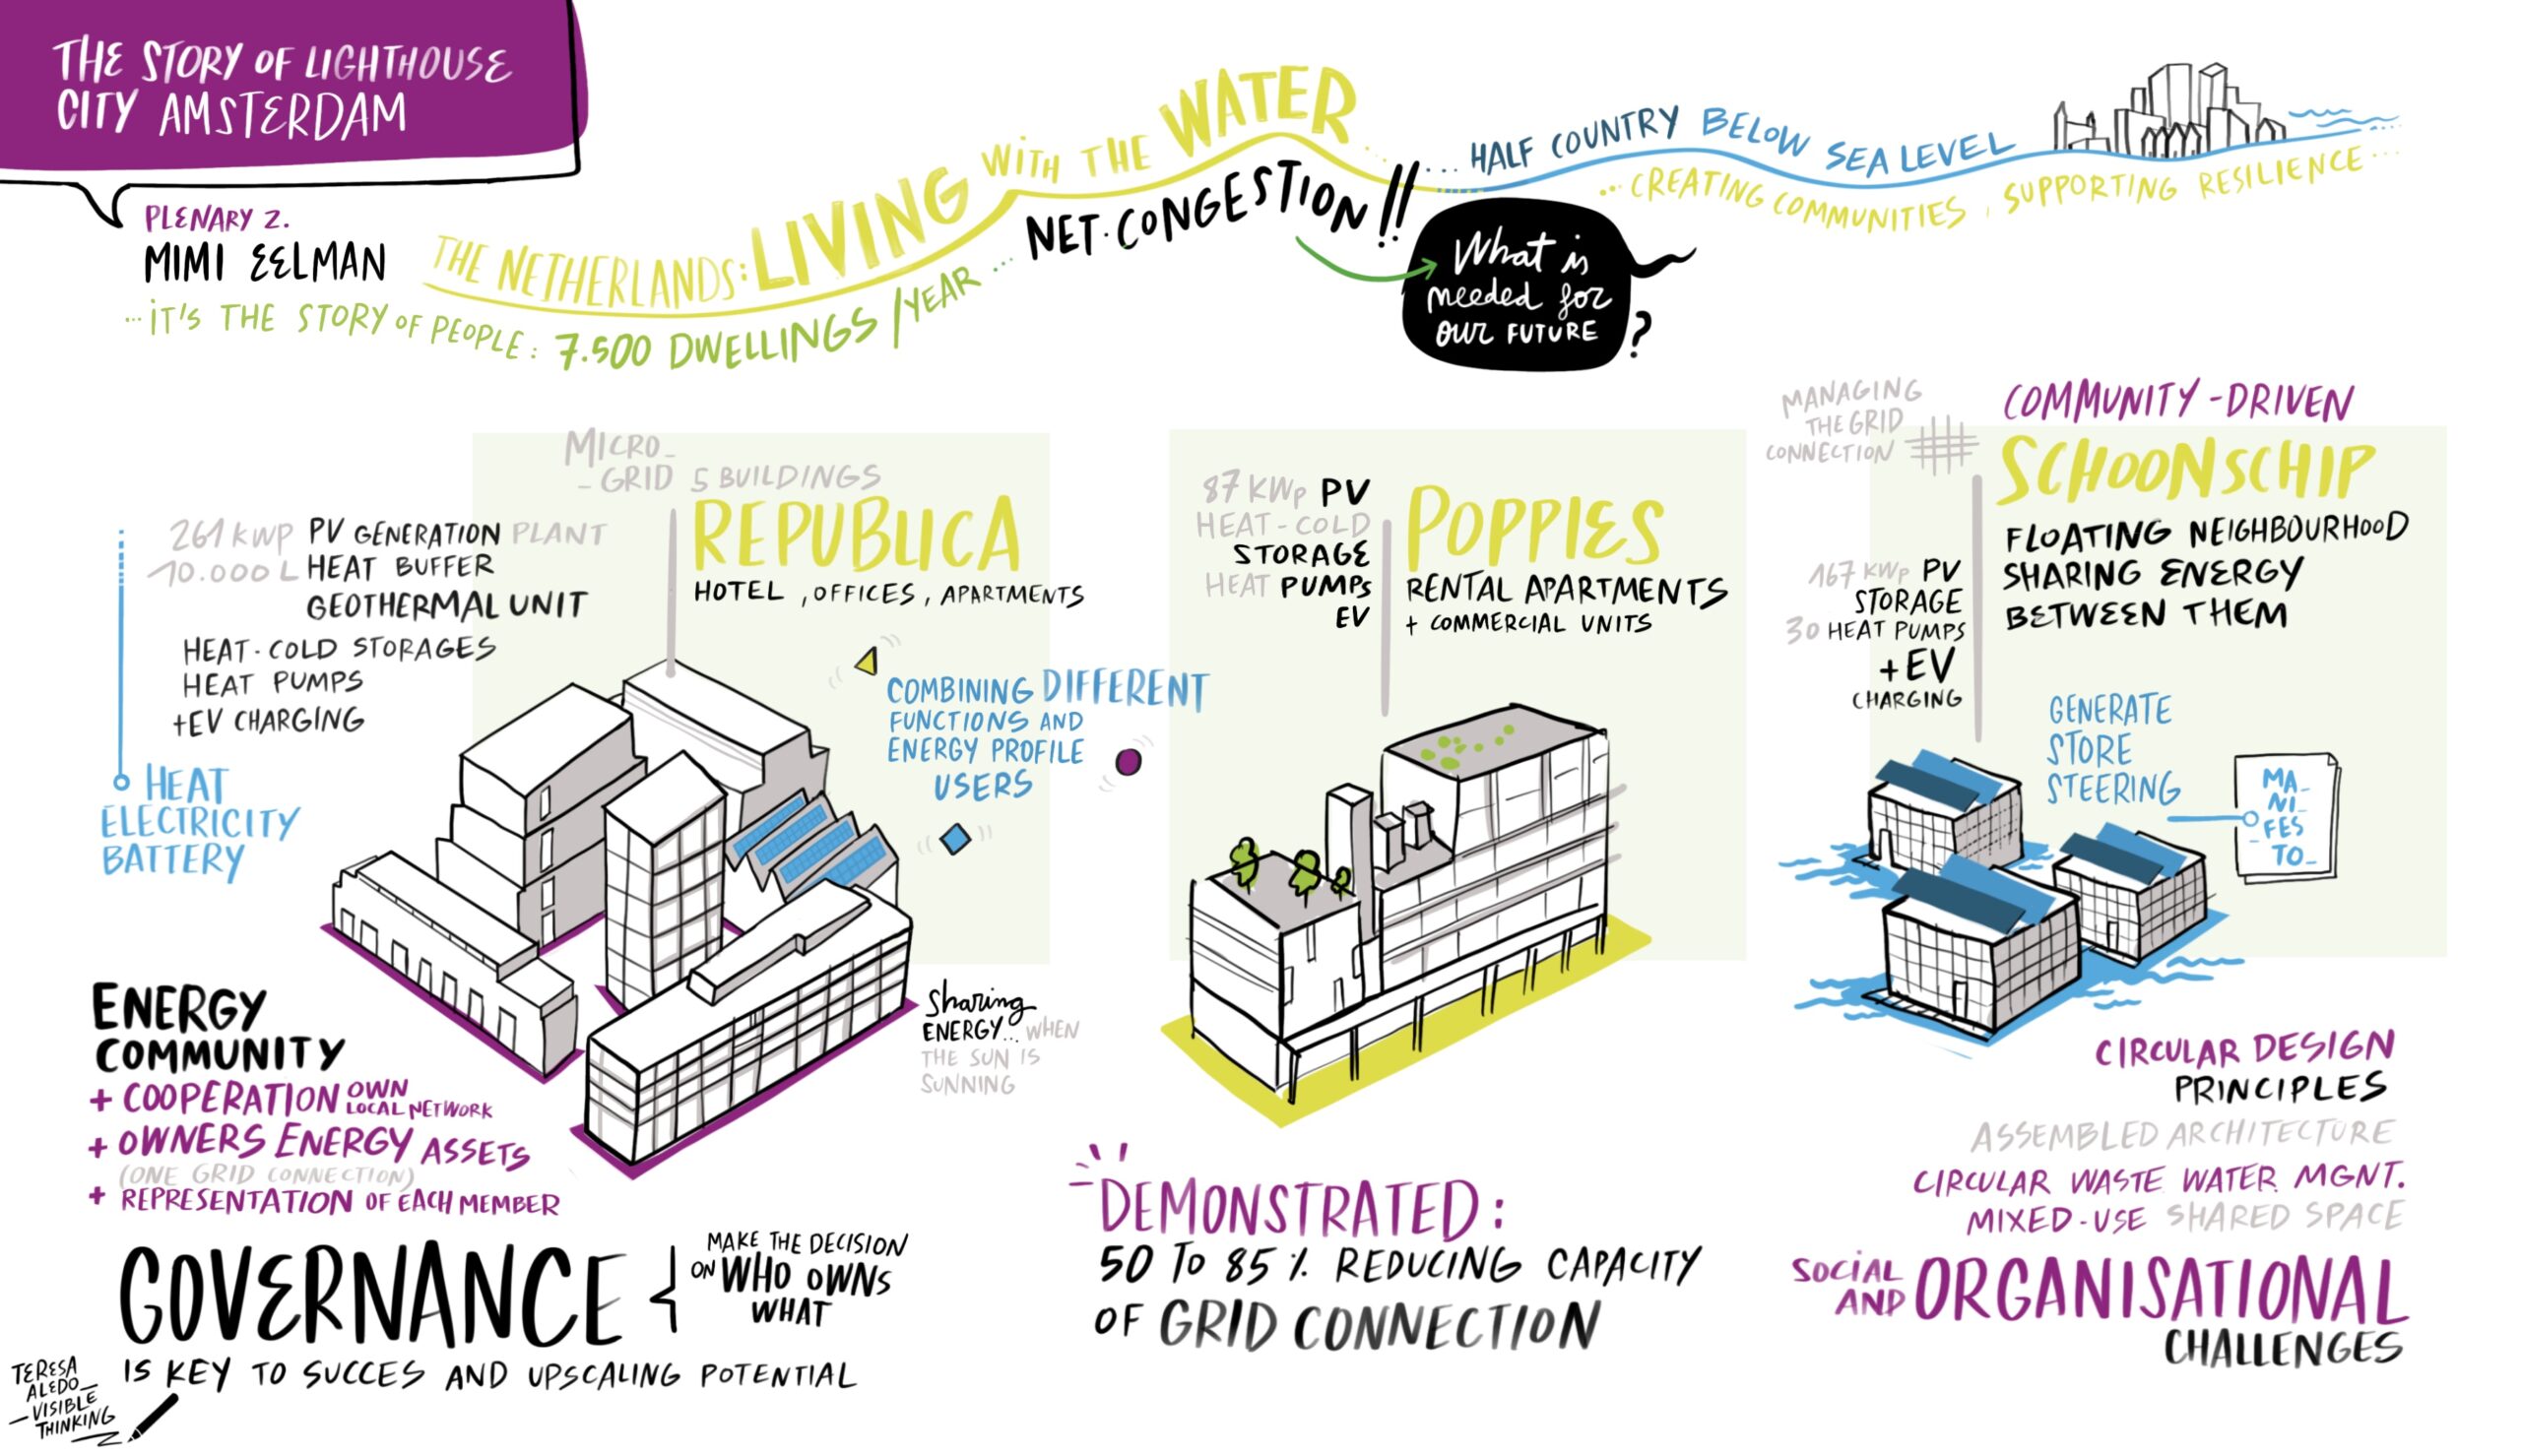 THE STORY OF LIGHTHOUSE
CITY AMSTERDAM
PLENARY 2.
MIMI EELMAN
...IT'S THE STORY OF PEOPLE: 7.500 DWELLINGS/YEAR ...
THE NETHERLANDS: LIVING WITH THE WATER...
NET·CONGESTION!!
... HALF COUNTRY BELOW SEA LEVEL
... CREATING COMMUNITIES, SUPPORTING RESILIENCE ...
What is
needed for
our FUTURE
?
MICRO_
- GRID 5 BUILDINGS
REPUBLICA
HOTEL, OFFICES, APARTMENTS
261 KWP PV GENERATION PLANT
10.000 L HEAT BUFFER
GEOTHERMAL UNIT
HEAT-COLD STORAGES
HEAT PUMPS
+EV CHARGING
HEAT
ELECTRICITY
BATTERY
COMBINING DIFFERENT
FUNCTIONS AND
ENERGY PROFILE
USERS
Sharing
ENERGY... WHEN
THE SUN IS
SUNNING
ENERGY
COMMUNITY
+ COOPERATION OWN
LOCAL NETWORK
+ OWNERS ENERGY ASSETS
(ONE GRID CONNECTION)
+ REPRESENTATION OF EACH MEMBER
GOVERNANCE {
MAKE THE DECISION
ON WHO OWNS
WHAT
IS KEY TO SUCCES AND UPSCALING POTENTIAL
TERESA
ALEDO_
-VISIBLE
THINKING
87 KWp PV
HEAT-COLD
STORAGE
HEAT PUMPS
EV
POPPIES
RENTAL APARTMENTS
+ COMMERCIAL UNITS
DEMONSTRATED:
50 TO 85 % REDUCING CAPACITY
OF GRID CONNECTION
MANAGING
THE GRID
CONNECTION
COMMUNITY-DRIVEN
SCHOONSCHIP
FLOATING NEIGHBOURHOOD
SHARING ENERGY
BETWEEN THEM
167 KWp PV
STORAGE
30 HEAT PUMPS
+EV
CHARGING
GENERATE
STORE
STEERING
MA_
NI_
FES
_TO_
CIRCULAR DESIGN
PRINCIPLES
ASSEMBLED ARCHITECTURE
CIRCULAR WASTE WATER MGNT.
MIXED-USE SHARED SPACE
SOCIAL
AND ORGANISATIONAL
CHALLENGES